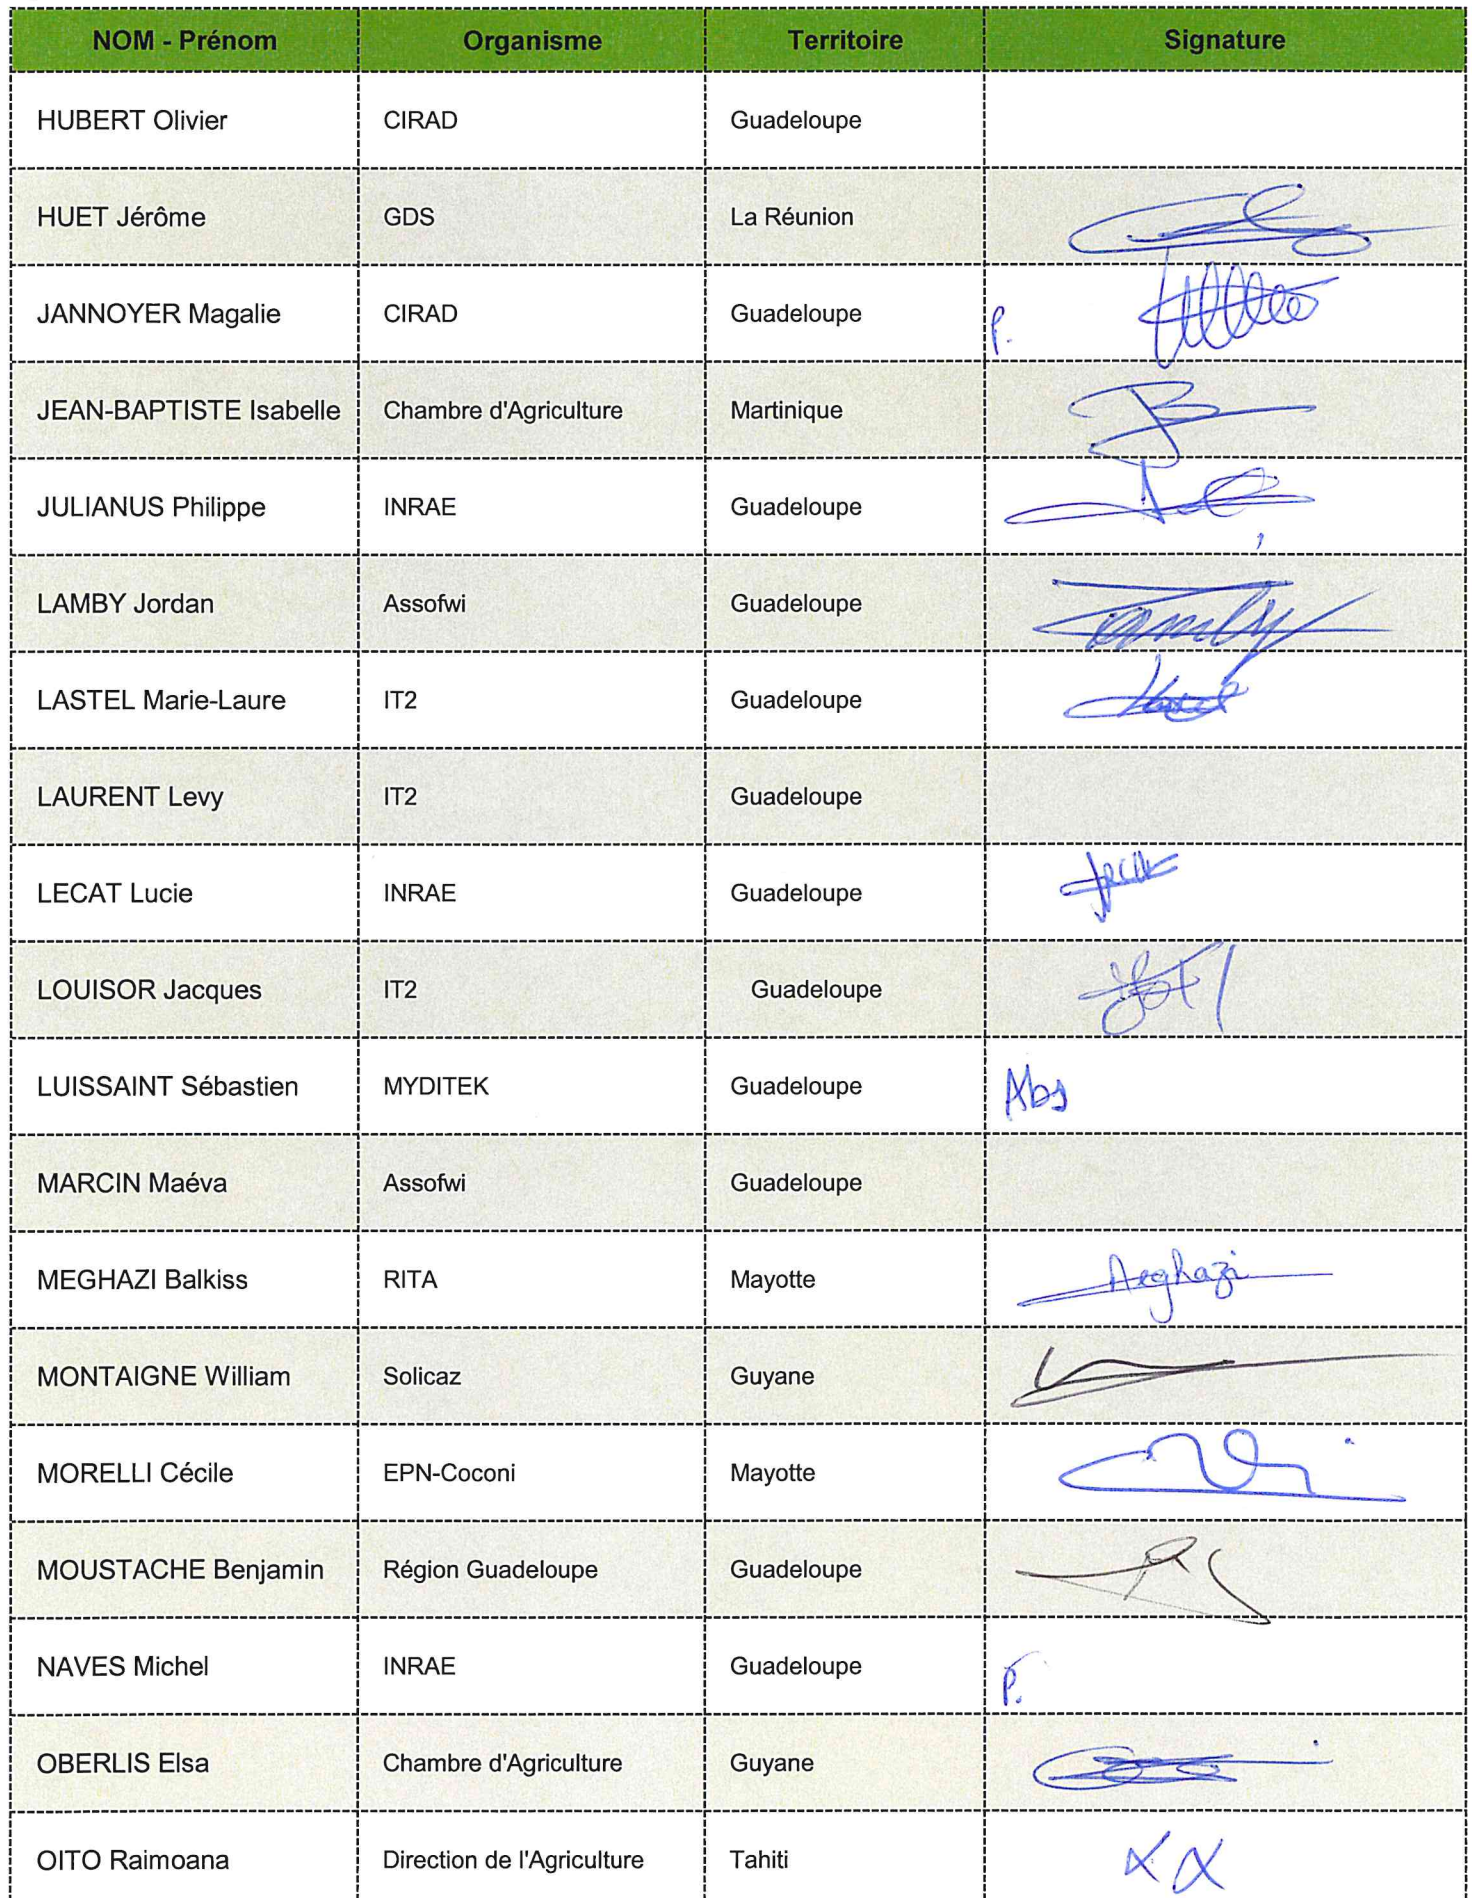 NOM - Prénom Organisme Territoire Signature
HUBERT Olivier CIRAD Guadeloupe
HUET Jérôme GDS La Réunion
JANNOYER Magalie CIRAD Guadeloupe P.
JEAN-BAPTISTE Isabelle Chambre d'Agriculture Martinique
JULIANUS Philippe INRAE Guadeloupe
LAMBY Jordan Assofwi Guadeloupe
LASTEL Marie-Laure IT2 Guadeloupe
LAURENT Levy IT2 Guadeloupe
LECAT Lucie INRAE Guadeloupe
LOUISOR Jacques IT2 Guadeloupe
LUISSAINT Sébastien MYDITEK Guadeloupe Abs
MARCIN Maéva Assofwi Guadeloupe
MEGHAZI Balkiss RITA Mayotte Meghazi
MONTAIGNE William Solicaz Guyane
MORELLI Cécile EPN-Coconi Mayotte
MOUSTACHE Benjamin Région Guadeloupe Guadeloupe
NAVES Michel INRAE Guadeloupe P.
OBERLIS Elsa Chambre d'Agriculture Guyane
OITO Raimoana Direction de l'Agriculture Tahiti